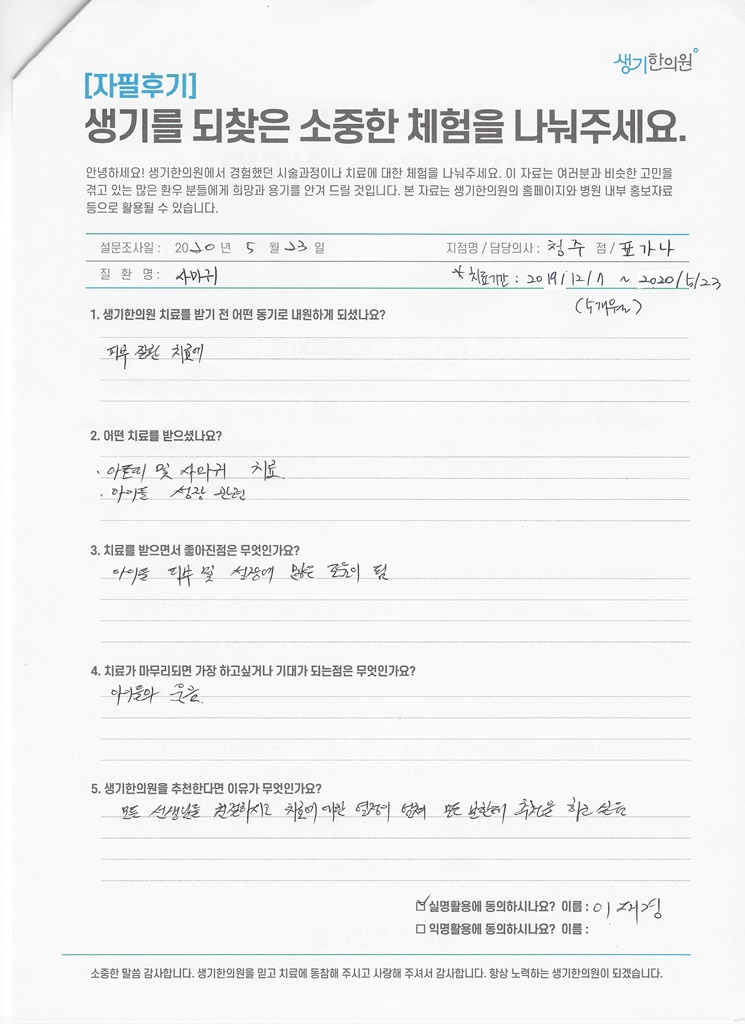 생기한의원
[자필후기]
생기를 되찾은 소중한 체험을 나눠주세요.
안녕하세요! 생기한의원에서 경험했던 시술과정이나 치료에 대한 체험을 나눠주세요. 이 자료는 여러분과 비슷한 고민을
겪고 있는 많은 환우 분들에게 희망과 용기를 안겨 드릴 것입니다. 본 자료는 생기한의원의 홈페이지와 병원 내부 홍보자료
등으로 활용될 수 있습니다.
설문조사일 : 2020 년 5 월 23 일 지점명 / 담당의사 : 청주 점 / 표가나
질 환 명 : 사마귀 * 치료기간 : 2019/12/1 ~ 2020/5/23
(5개월)
1. 생기한의원 치료를 받기 전 어떤 동기로 내원하게 되셨나요?
피부 질환 치료에
2. 어떤 치료를 받으셨나요?
· 아토피 및 사마귀 치료.
· 아이들 성장 관련
3. 치료를 받으면서 좋아진점은 무엇인가요?
아이들 피부 및 성장에 많은 도움이 됨
4. 치료가 마무리되면 가장 하고싶거나 기대가 되는점은 무엇인가요?
아이들의 웃음.
5. 생기한의원을 추천한다면 이유가 무엇인가요?
모든 선생님들 친절하시고 치료에 대한 열정이 넘쳐 모든 분한테 추천을 하고 싶음
☑ 실명활용에 동의하시나요? 이름 : 이재경
☐ 익명활용에 동의하시나요? 이름 :
소중한 말씀 감사합니다. 생기한의원을 믿고 치료에 동참해 주시고 사랑해 주셔서 감사합니다. 항상 노력하는 생기한의원이 되겠습니다.